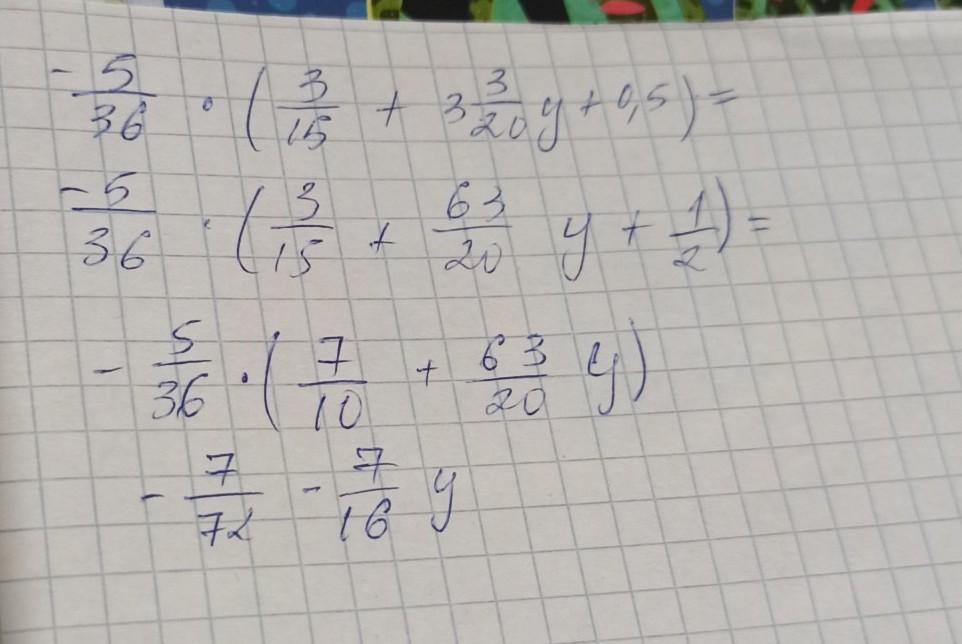 -5/36 · (3/15 + 3 3/20 y + 0,5) =
-5/36 · (3/15 + 63/20 y + 1/2) =
- 5/36 · (7/10 + 63/20 y)
- 7/72 - 7/16 y